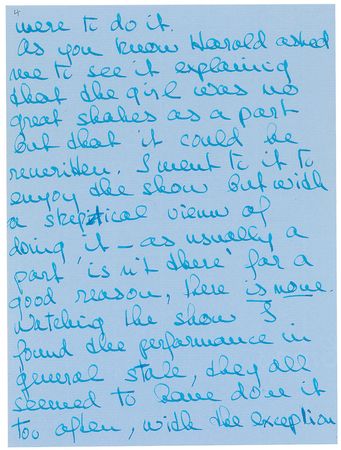 4
were to do it.
As you know Harold asked
me to see it explaining
that the girl was no
great shakes as a part
but that it could be
rewritten. I went to it to
enjoy the show but with
a skeptical view of
doing it – as usually a
part 'is n't there' for a
good reason, there is none.
Watching the show I
found the performance in
general stale, they all
seemed to have done it
too often, with the exception